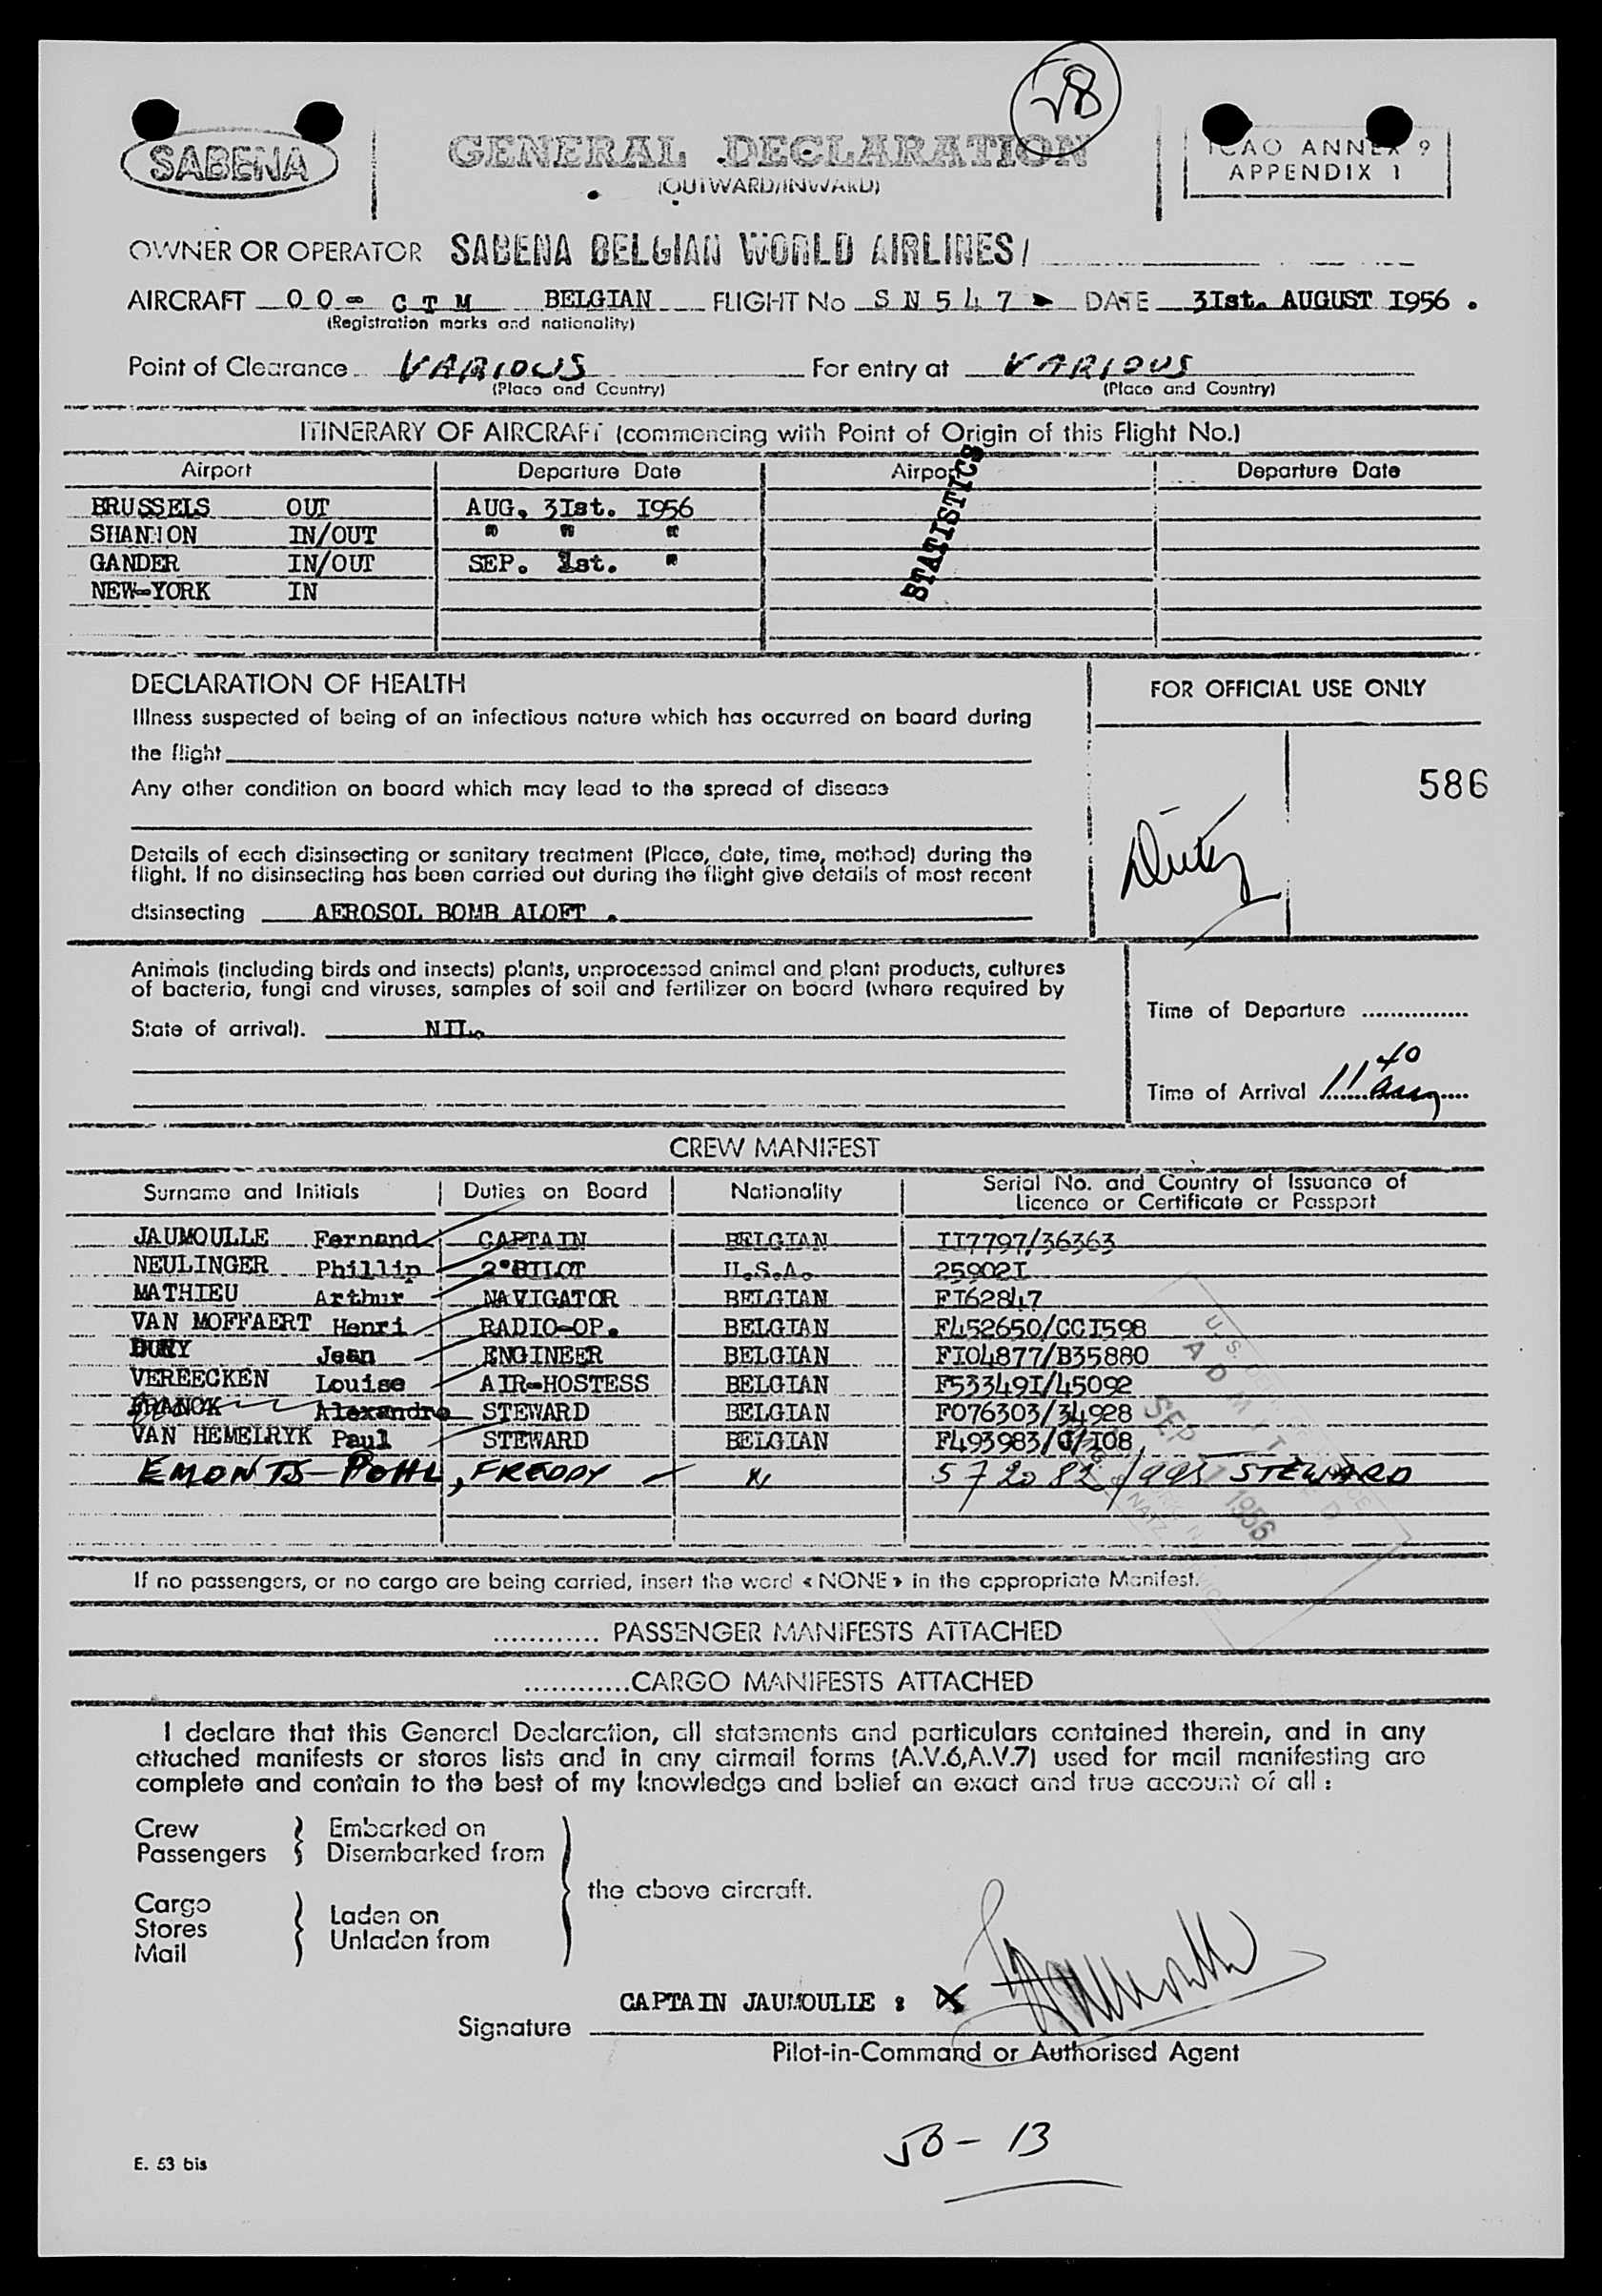 28
SABENA
GENERAL DECLARATION
(OUTWARD/INWARD)
ICAO ANNEX 9
APPENDIX 1
OWNER OR OPERATOR SABENA BELGIAN WORLD AIRLINES/
AIRCRAFT OO- CTM BELGIAN FLIGHT No SN 547 DATE 3Ist. AUGUST I956 .
(Registration marks and nationality)
Point of Clearance VARIOUS For entry at VARIOUS
(Place and Country) (Place and Country)
ITINERARY OF AIRCRAFT (commencing with Point of Origin of this Flight No.)
Airport Departure Date Airport Departure Date
STATISTICS
BRUSSELS OUT AUG. 3Ist. I956
SHANNON IN/OUT " " "
GANDER IN/OUT SEP. Ist. "
NEW-YORK IN
DECLARATION OF HEALTH
Illness suspected of being of an infectious nature which has occurred on board during
the flight
Any other condition on board which may lead to the spread of disease
Details of each disinsecting or sanitary treatment (Place, date, time, method) during the
flight. If no disinsecting has been carried out during the flight give details of most recent
disinsecting AEROSOL BOMB ALOFT .
FOR OFFICIAL USE ONLY
586
Animals (including birds and insects) plants, unprocessed animal and plant products, cultures
of bacteria, fungi and viruses, samples of soil and fertilizer on board (where required by
State of arrival). NIL.
Time of Departure ...............
Time of Arrival 11 40
CREW MANIFEST
Surname and Initials Duties on Board Nationality Serial No. and Country of Issuance of
Licence or Certificate or Passport
JAUMOULLE Fernand CAPTAIN BELGIAN II7797/36363
NEULINGER Phillip 2°PILOT U.S.A. 25902I
MATHIEU Arthur NAVIGATOR BELGIAN FI62847
VAN MOFFAERT Henri RADIO-OP. BELGIAN F452650/CCI598
DURY Jean ENGINEER BELGIAN FIO4877/B35880
VEREECKEN Louise AIR-HOSTESS BELGIAN F53349I/45092
FRANCK Alexandre STEWARD BELGIAN FO76303/34928
VAN HEMELRYK Paul STEWARD BELGIAN F493983/C/IO8
EMONTS-POHL, FREDDY " 572082/995 STEWARD
ADMITTED
SEP 1 1956
If no passengers, or no cargo are being carried, insert the word «NONE» in the appropriate Manifest.
............ PASSENGER MANIFESTS ATTACHED
............CARGO MANIFESTS ATTACHED
I declare that this General Declaration, all statements and particulars contained therein, and in any
attached manifests or stores lists and in any airmail forms (A.V.6,A.V.7) used for mail manifesting are
complete and contain to the best of my knowledge and belief an exact and true account of all :
Crew Embarked on
Passengers Disembarked from
the above aircraft.
Cargo
Stores Laden on
Mail Unladen from
CAPTAIN JAUMOULLE : X
Signature
Pilot-in-Command or Authorised Agent
50-13
E. 53 bis